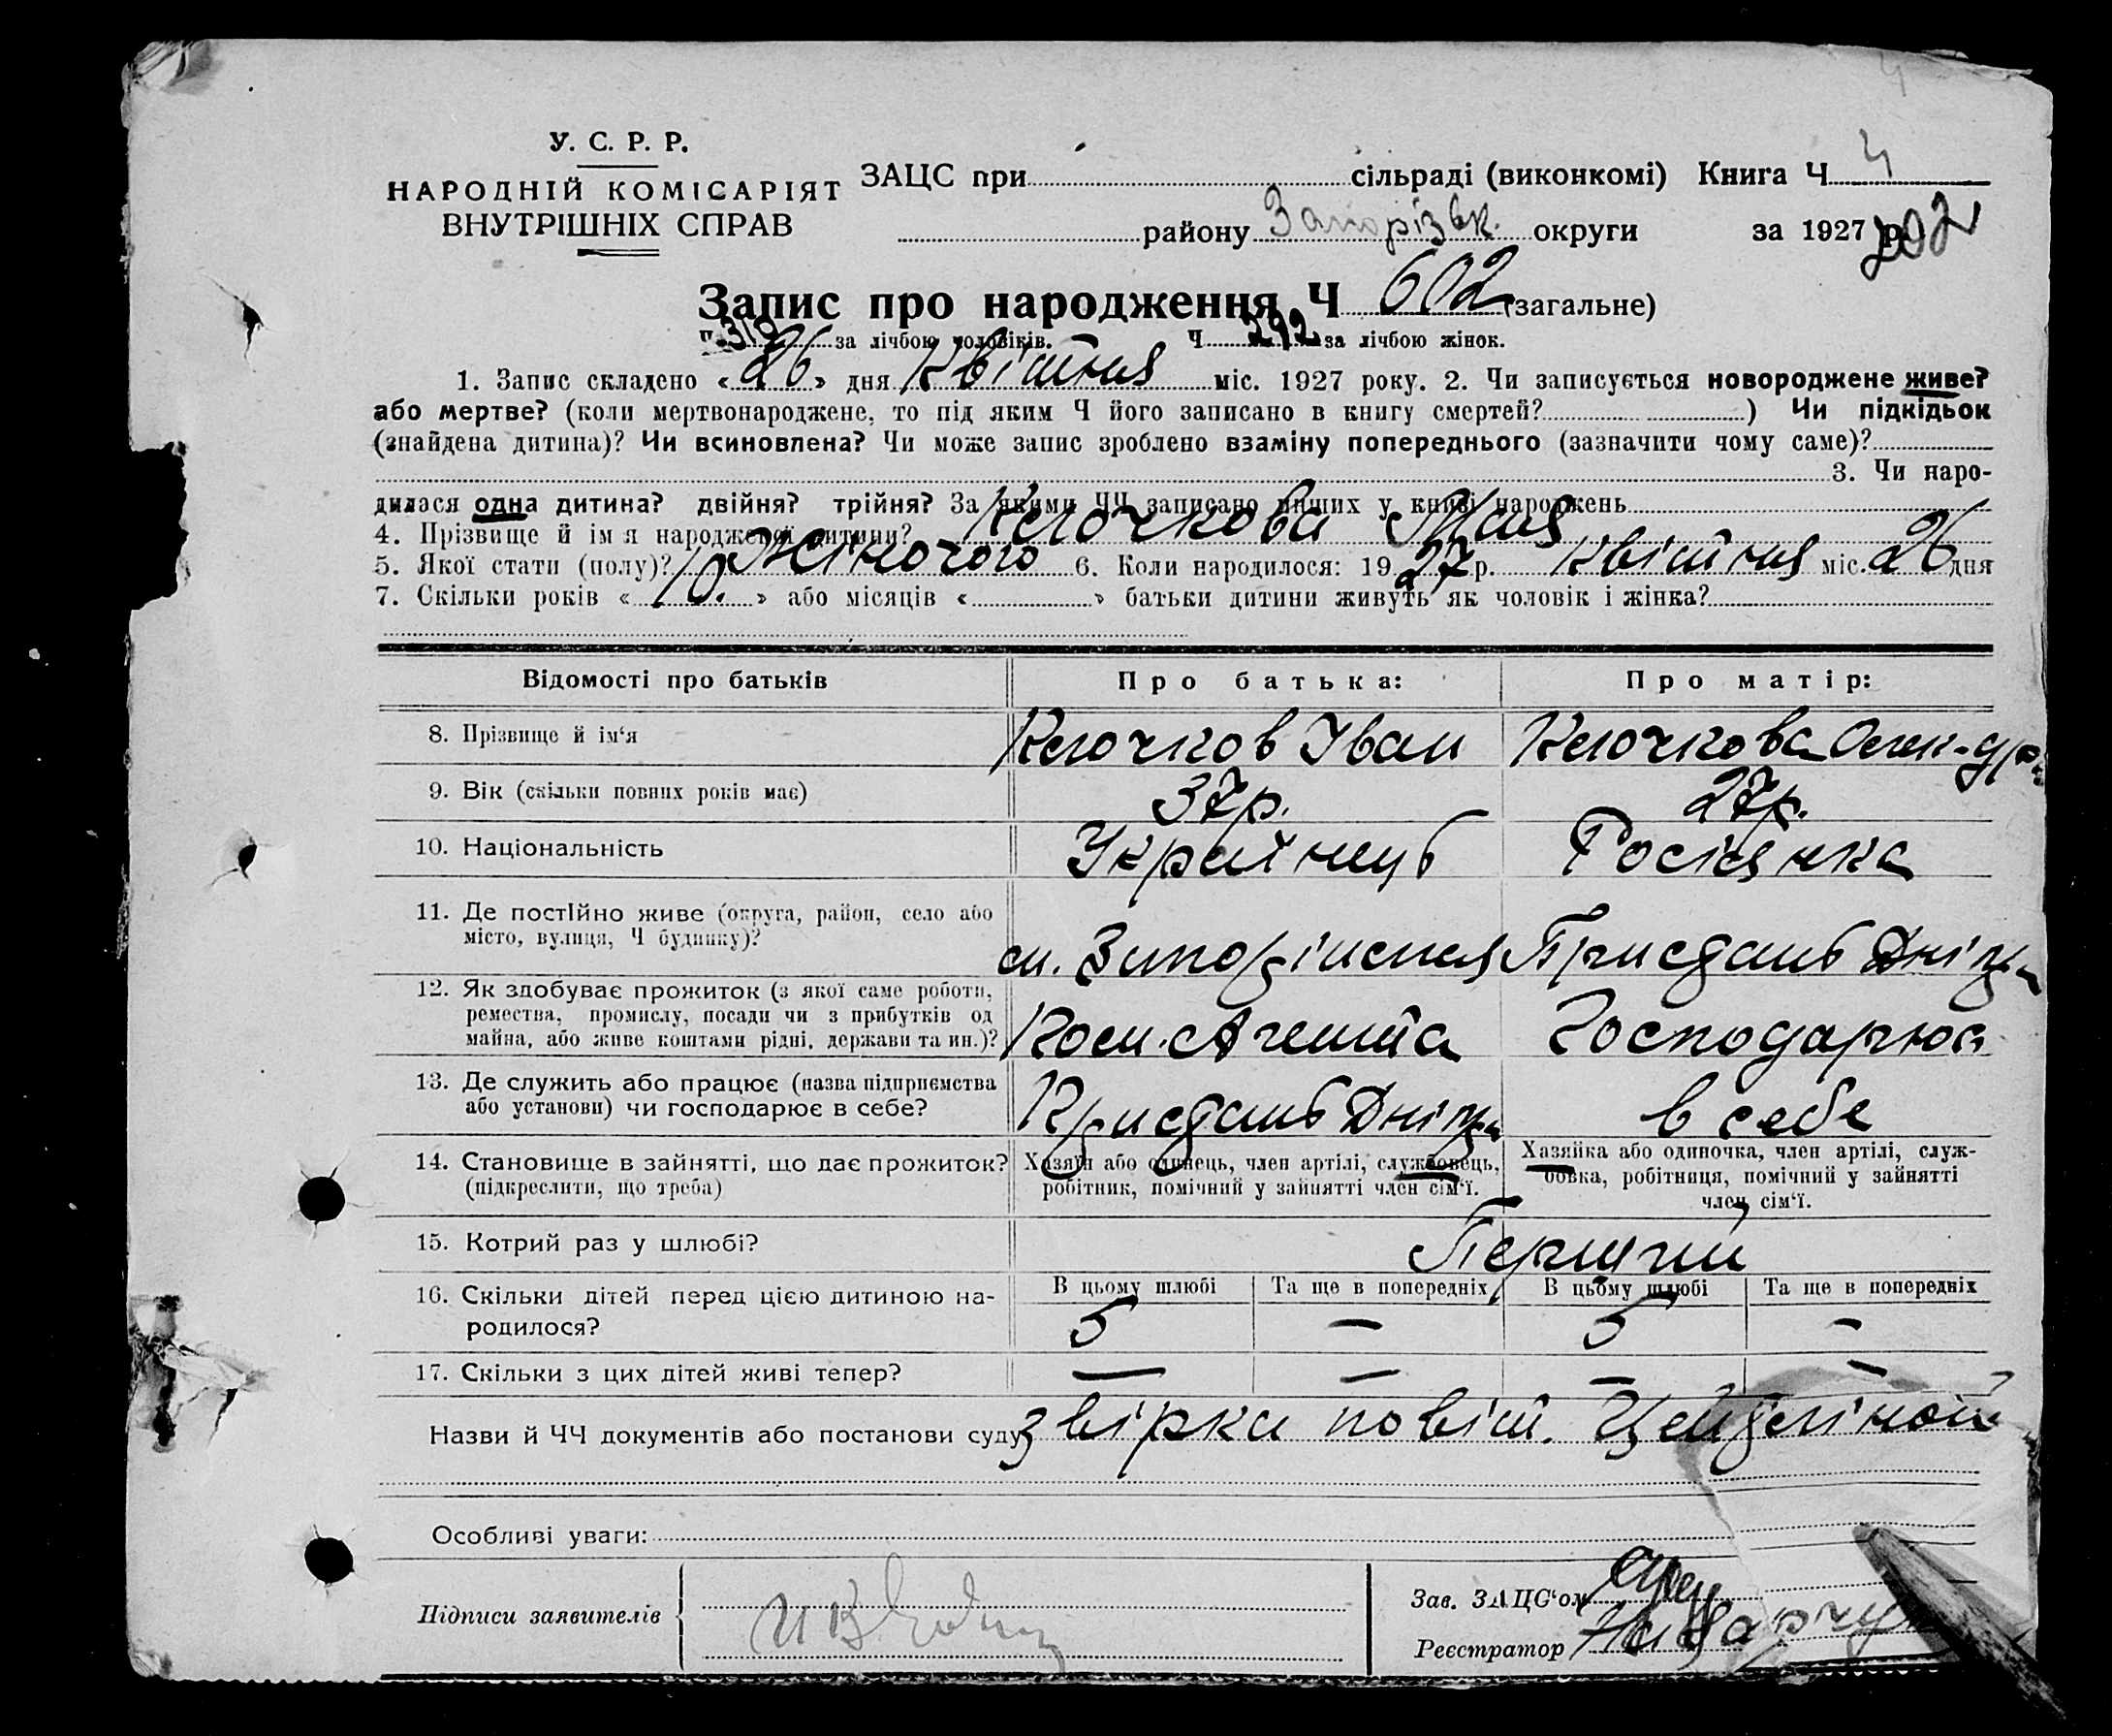 4
У. С. Р. Р.
НАРОДНІЙ КОМІСАРІЯТ
ВНУТРІШНІХ СПРАВ
ЗАЦС при сільраді (виконкомі) Книга Ч 4
району Запорізьк. округи за 1927 р. 202
Запис про народження Ч 602 (загальне)
Ч 310 за лічбою чоловіків. Ч 292 за лічбою жінок.
1. Запис складено «26» дня Квітня міс. 1927 року. 2. Чи записується новороджене живе?
або мертве? (коли мертвонароджене, то під яким Ч його записано в книгу смертей? ) Чи підкідьок
(знайдена дитина)? Чи всиновлена? Чи може запис зроблено взаміну попереднього (зазначити чому саме)?
3. Чи наро-
дилася одна дитина? двійня? трійня? За якими ЧЧ записано инших у книзі народжень
4. Прізвище й ім'я народженої дитини? Клочкова Мая
5. Якої стати (полу)? Жіночого 6. Коли народилося: 1927 р. Квітня міс. 26 дня
7. Скільки років «10.» або місяців « » батьки дитини живуть як чоловік і жінка?
Відомості про батьків Про батька: Про матір:
8. Прізвище й ім'я Клочков Іван Клочкова Олек-др.
9. Вік (скільки повних років має) 37р. 27р.
10. Національність Українець Росіянка
11. Де постІйно живе (округа, район, село або
місто, вулиця, Ч будинку)?
Пристань Дніпра
12. Як здобуває прожиток (з якої саме роботи,
ремества, промислу, посади чи з прибутків од
майна, або живе коштами рідні, держави та ин.)?
Ком. Агента Господарює
13. Де служить або працює (назва підприємства
або установи) чи господарює в себе?
Пристань Дніпра в себе
14. Становище в зайнятті, що дає прожиток?
(підкреслити, що треба)
Хазяїн або одинець, член артілі, службовець,
робітник, помічний у зайнятті член сім'ї.
Хазяйка або одиночка, член артілі, служ-
бовка, робітниця, помічний у зайнятті
член сім'ї.
15. Котрий раз у шлюбі? Перший
В цьому шлюбі Та ще в попередніх В цьому шлюбі Та ще в попередніх
16. Скільки дітей перед цією дитиною на-
родилося?
5 — 5 —
17. Скільки з цих дітей живі тепер? — — — —
Назви й ЧЧ документів або постанови суду звірка повіт.
Особливі уваги:
Підписи заявителів
Зав. ЗАЦС'ом
Реєстратор